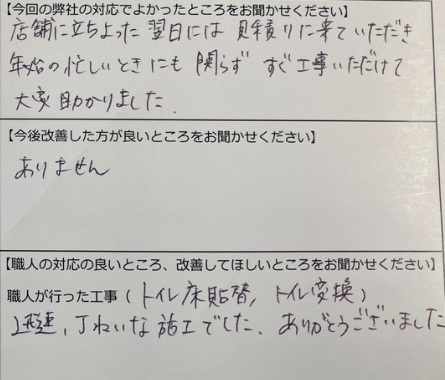 【今回の弊社の対応でよかったところをお聞かせください】
店舗に立ちよった翌日には見積りに来ていただき
年始の忙しいときにも関らず すぐ工事いただけて
大変助かりました.
【今後改善した方が良いところをお聞かせください】
ありません
【職人の対応の良いところ、改善してほしいところをお聞かせください】
職人が行った工事（トイレ床貼替, トイレ交換）
迅速, 丁ねいな施工でした. ありがとうございました